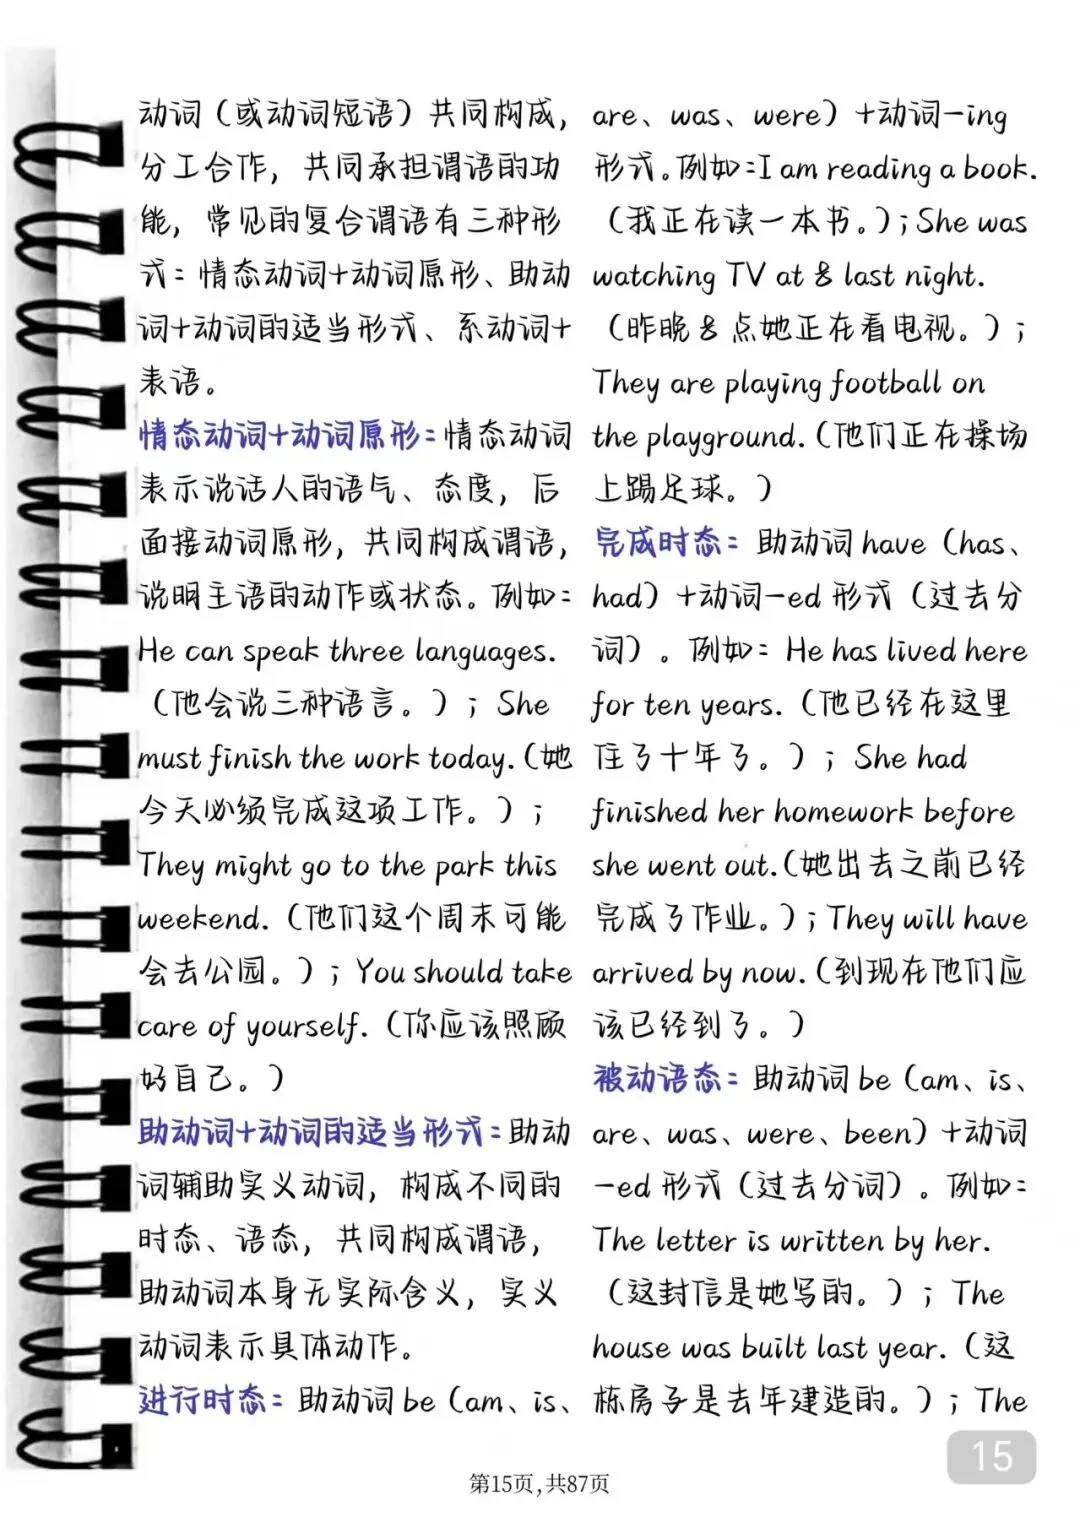 动词（或动词短语）共同构成，
分工合作，共同承担谓语的功
能，常见的复合谓语有三种形
式：情态动词+动词原形、助动
词+动词的适当形式、系动词+
表语。
情态动词+动词原形：情态动词
表示说话人的语气、态度，后
面接动词原形，共同构成谓语，
说明主语的动作或状态。例如：
He can speak three languages.
（他会说三种语言。）；She
must finish the work today.（她
今天必须完成这项工作。）；
They might go to the park this
weekend.（他们这个周末可能
会去公园。）；You should take
care of yourself.（你应该照顾
好自己。）
助动词+动词的适当形式：助动
词辅助实义动词，构成不同的
时态、语态，共同构成谓语，
助动词本身无实际含义，实义
动词表示具体动作。
进行时态：助动词 be（am、is、
are、was、were）+动词-ing
形式。例如：I am reading a book.
（我正在读一本书。）；She was
watching TV at 8 last night.
（昨晚 8 点她正在看电视。）；
They are playing football on
the playground.（他们正在操场
上踢足球。）
完成时态：助动词 have（has、
had）+动词-ed 形式（过去分
词）。例如：He has lived here
for ten years.（他已经在这里
住了十年了。）；She had
finished her homework before
she went out.（她出去之前已经
完成了作业。）；They will have
arrived by now.（到现在他们应
该已经到了。）
被动语态：助动词 be（am、is、
are、was、were、been）+动词
-ed 形式（过去分词）。例如：
The letter is written by her.
（这封信是她写的。）；The
house was built last year.（这
栋房子是去年建造的。）；The
15
第15页,共87页